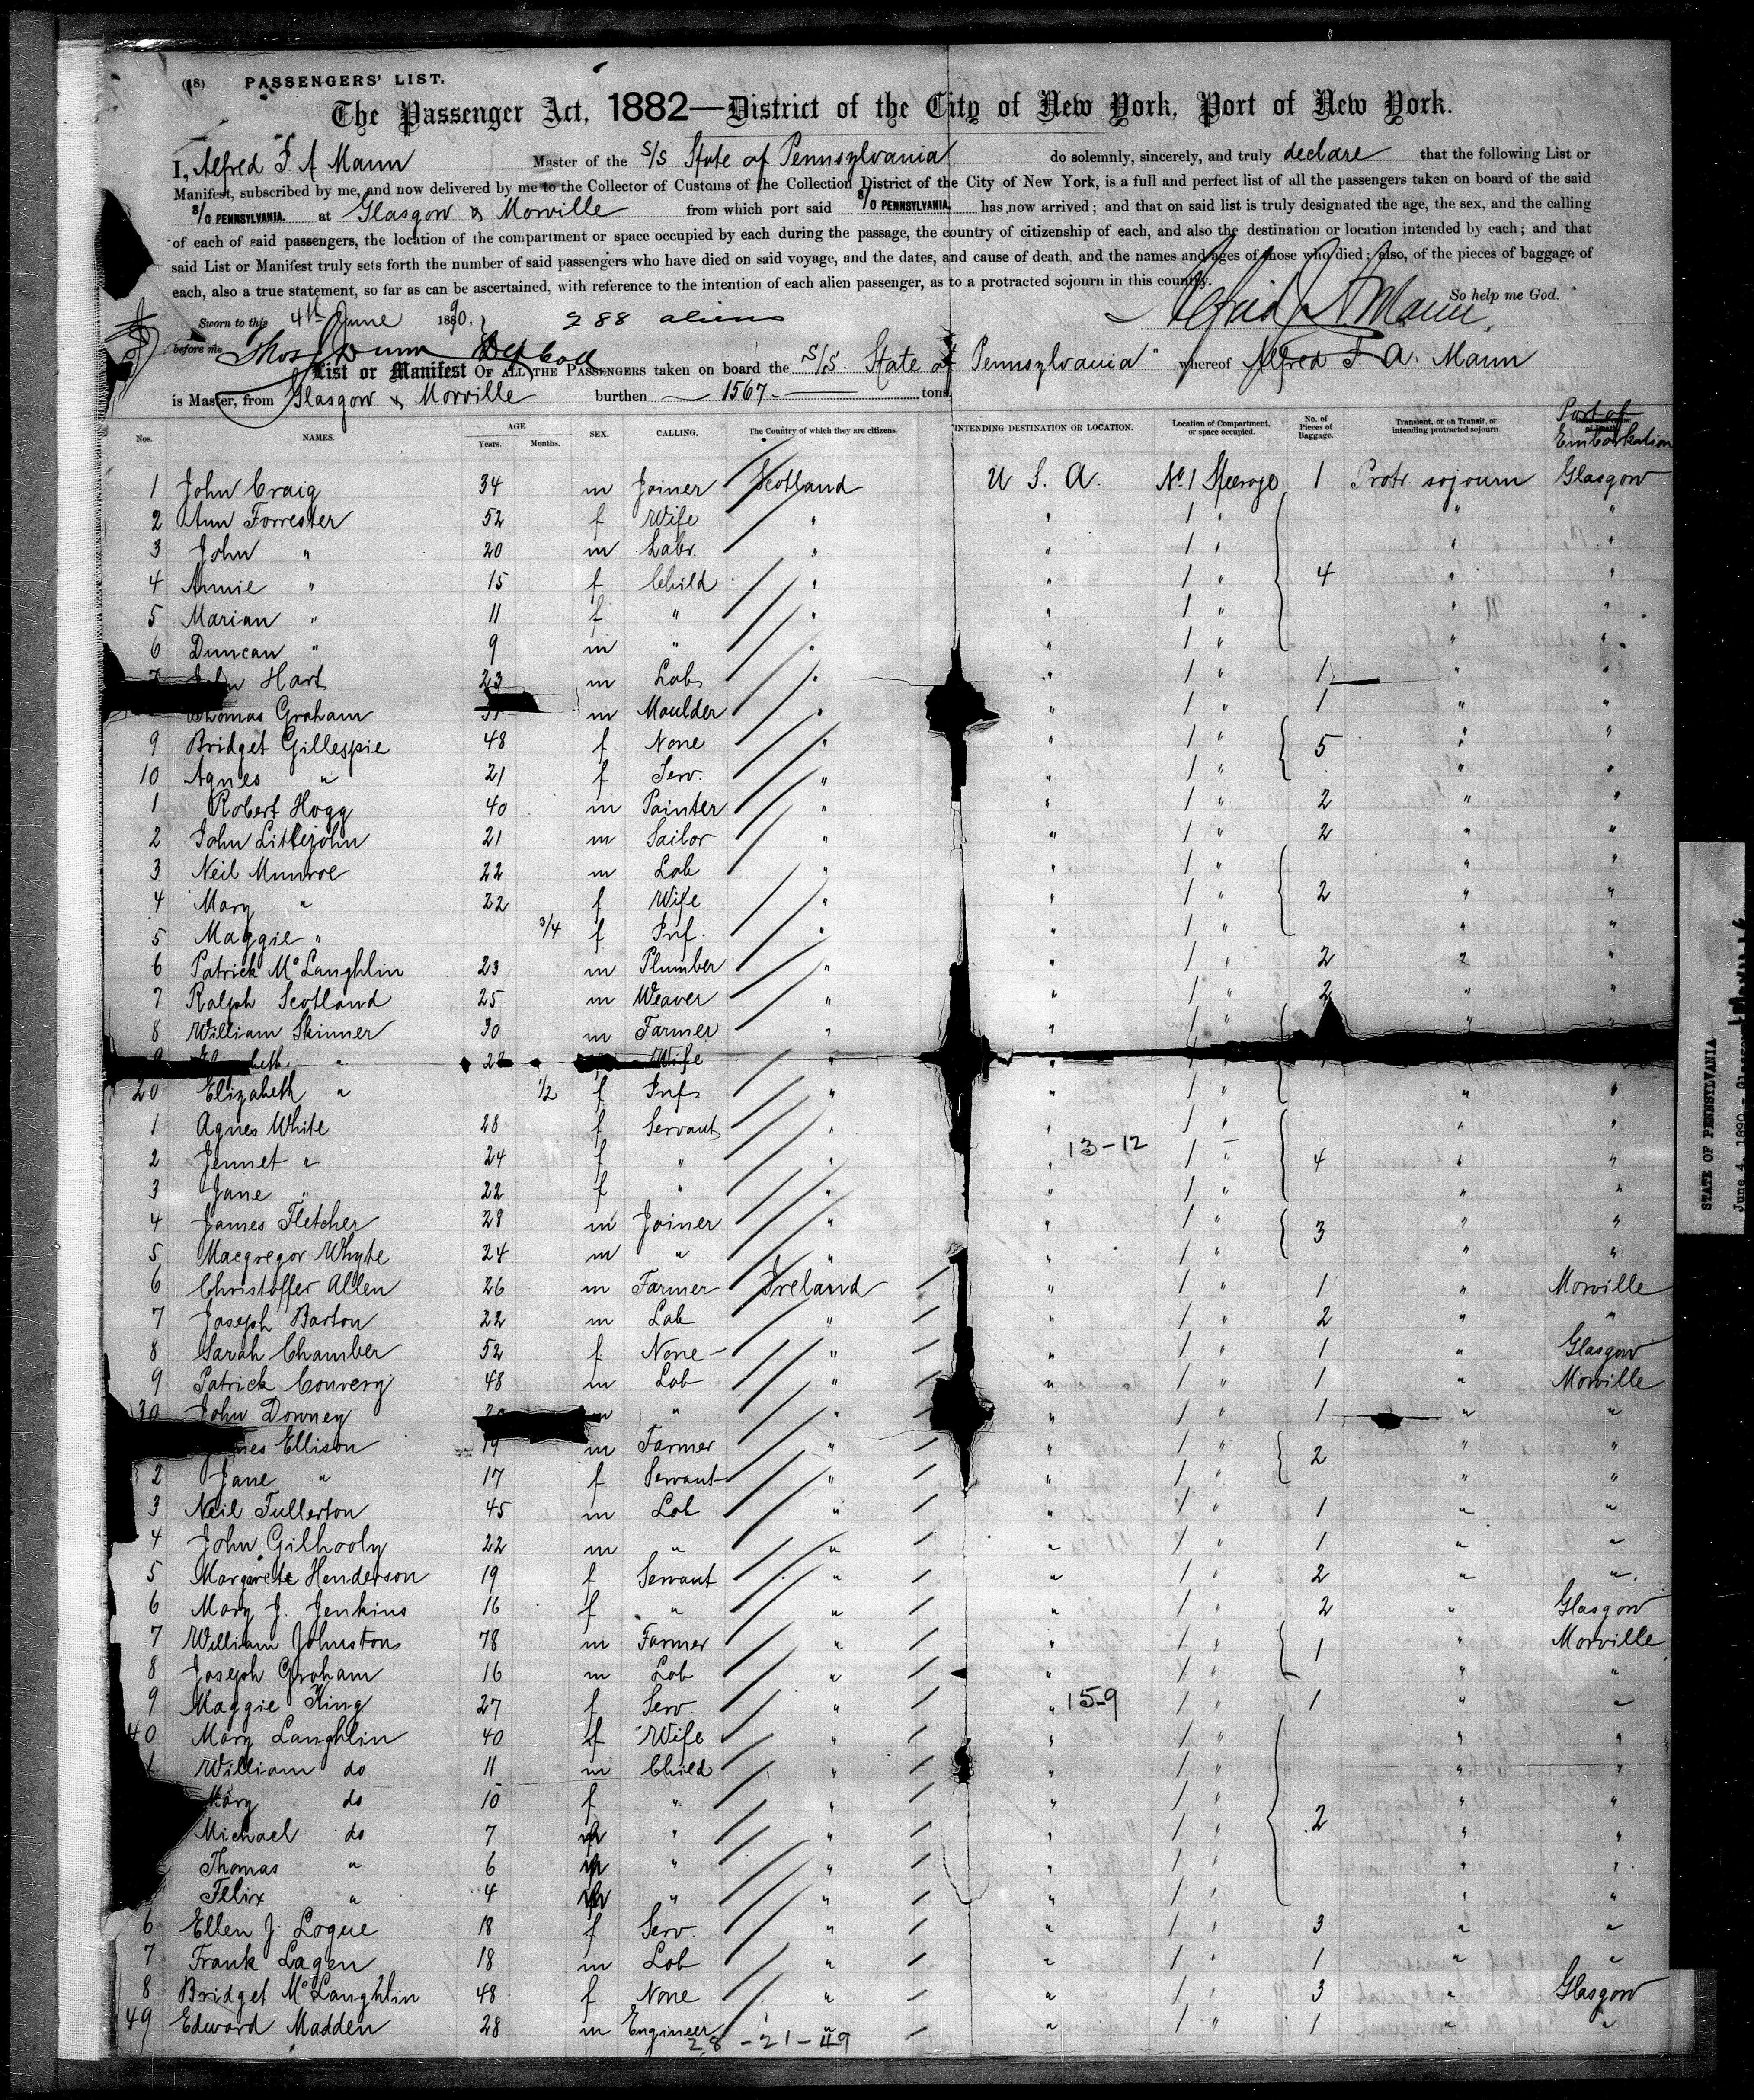 (18) PASSENGERS' LIST.
The Passenger Act, 1882—District of the City of New York, Port of New York.
I, Alfred J. A Mann Master of the S/S State of Pennsylvania do solemnly, sincerely, and truly declare that the following List or
Manifest, subscribed by me, and now delivered by me to the Collector of Customs of the Collection District of the City of New York, is a full and perfect list of all the passengers taken on board of the said
S/O PENNSYLVANIA. at Glasgow & Morville from which port said S/O PENNSYLVANIA. has now arrived; and that on said list is truly designated the age, the sex, and the calling
of each of said passengers, the location of the compartment or space occupied by each during the passage, the country of citizenship of each, and also the destination or location intended by each; and that
said List or Manifest truly sets forth the number of said passengers who have died on said voyage, and the dates, and cause of death, and the names and ages of those who died; also, of the pieces of baggage of
each, also a true statement, so far as can be ascertained, with reference to the intention of each alien passenger, as to a protracted sojourn in this country.
So help me God.
Sworn to this 4th June 1890. 288 aliens Alfred J A Mann
before me Thos Dunn Dep Coll
List or Manifest OF ALL THE PASSENGERS taken on board the S/S. State of Pennsylvania" whereof Alfred J. A. Mann
is Master, from Glasgow & Morville burthen 1567 tons.
Nos. NAMES. AGE Years. Months. SEX. CALLING. The Country of which they are citizens INTENDING DESTINATION OR LOCATION. Location of Compartment, or space occupied. No. of Pieces of Baggage. Transient, or on Transit, or intending protracted sojourn Port of Embarkation
1 John Craig 34 m Joiner Scotland U S. A. No. 1 Steerage 1 Protr. sojourn Glasgow
2 Ann Forrester 52 f Wife " " 1 " " "
3 John " 20 m Labr. " " 1 " " "
4 Annie " 15 f Child " " 1 " 4 " "
5 Marian " 11 f " " " 1 " " "
6 Duncan " 9 m " " " 1 " " "
7 John Hart 23 m Lab " " 1 " 1 " "
Thomas Graham m Moulder " " 1 " 1 " "
9 Bridget Gillespie 48 f None " " 1 " 5 " "
10 Agnes " 21 f Serv. " " 1 " " "
1 Robert Hogg 40 m Painter " " 1 " 2 " "
2 John Littlejohn 21 m Sailor " " 1 " 2 " "
3 Neil Munroe 22 m Lab " " 1 " " "
4 Mary " 22 f Wife " " 1 " 2 " "
5 Maggie " 3/4 f Inf. " " 1 " " "
6 Patrick McLaughlin 23 m Plumber " " 1 " 2 " "
7 Ralph Scotland 25 m Weaver " " 1 " 2 " "
8 William Skinner 30 m Farmer " " 1 " " "
" 28 Wife " "
20 Elizabeth " 1/2 f Inf " " 1 " " "
1 Agnes White 28 f Servant " " 1 " " "
2 Jennet " 24 f " " " 13-12 1 " 4 " "
3 Jane " 22 f " " " 1 " " "
4 James Fletcher 28 m Joiner " " 1 " 3 " "
5 Macgregor Whyte 24 m " " " 1 " " "
6 Christoffer Allen 26 m Farmer Ireland " 1 " 1 " Morville
7 Joseph Barton 22 m Lab " " 1 " 2 " "
8 Sarah Chamber 52 f None " " 1 " 1 " Glasgow
9 Patrick Convery 48 m Lab " " 1 " 1 " Morville
30 John Downey m " " " 1 " 1 " "
Ellison 19 m Farmer " " 1 " 2 " "
2 Jane " 17 f Servant " " 1 " " "
3 Neil Fullerton 45 m Lab " " 1 " 1 " "
4 John Gilhooly 22 m " " " 1 " 1 " "
5 Margarete Henderson 19 f Servant " " 1 " 2 " "
6 Mary J. Jenkins 16 f " " " 1 " 2 " Glasgow
7 William Johnston 78 m Farmer " " 1 " 1 " Morville
8 Joseph Graham 16 m Lab " " 1 " " "
9 Maggie King 27 f Serv. " " 15-9 1 " 1 " "
40 Mary Laughlin 40 f Wife " " 1 " " "
1 William do 11 m Child " " 1 " " "
Mary do 10 f " " " 1 " " "
Michael do 7 m " " " 1 " 2 " "
Thomas " 6 m " " " 1 " " "
Felix " 4 m " " " 1 " " "
6 Ellen J. Logue 18 f Serv. " " 1 " 3 " "
7 Frank Lagen 18 m Lab " " 1 " 1 " "
8 Bridget McLaughlin 48 f None " " 1 " 3 " Glasgow
49 Edward Madden 28 m Engineer " " 1 " 1 " "
28 - 21 - 49
STATE OF PENNSYLVANIA
June 4, 1890 - Glasgow